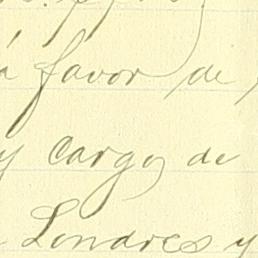 á favor de
y cargo de
Londres y